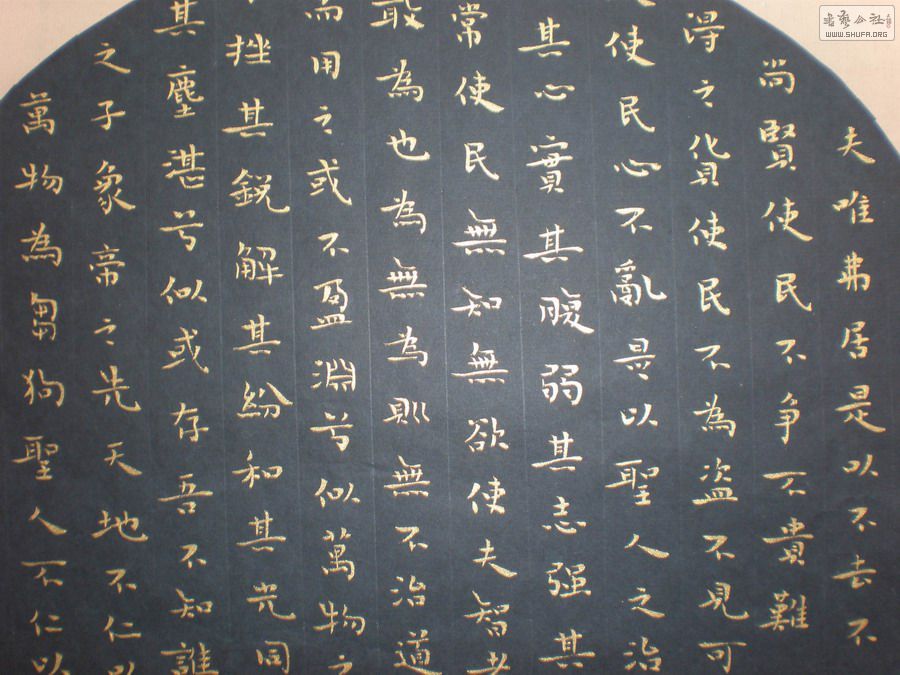 夫唯弗居是以不去不
尚賢使民不爭不貴難
得之貨使民不為盜不見可
使民心不亂是以聖人之治
其心實其腹弱其志強其
常使民無知無欲使夫智者
敢為也為無為則無不治道
而用之或不盈淵兮似萬物之
挫其銳解其紛和其光同
其塵湛兮似或存吾不知誰
之子象帝之先天地不仁以
萬物為芻狗聖人不仁以
書藝公社
WWW.SHUFA.ORG